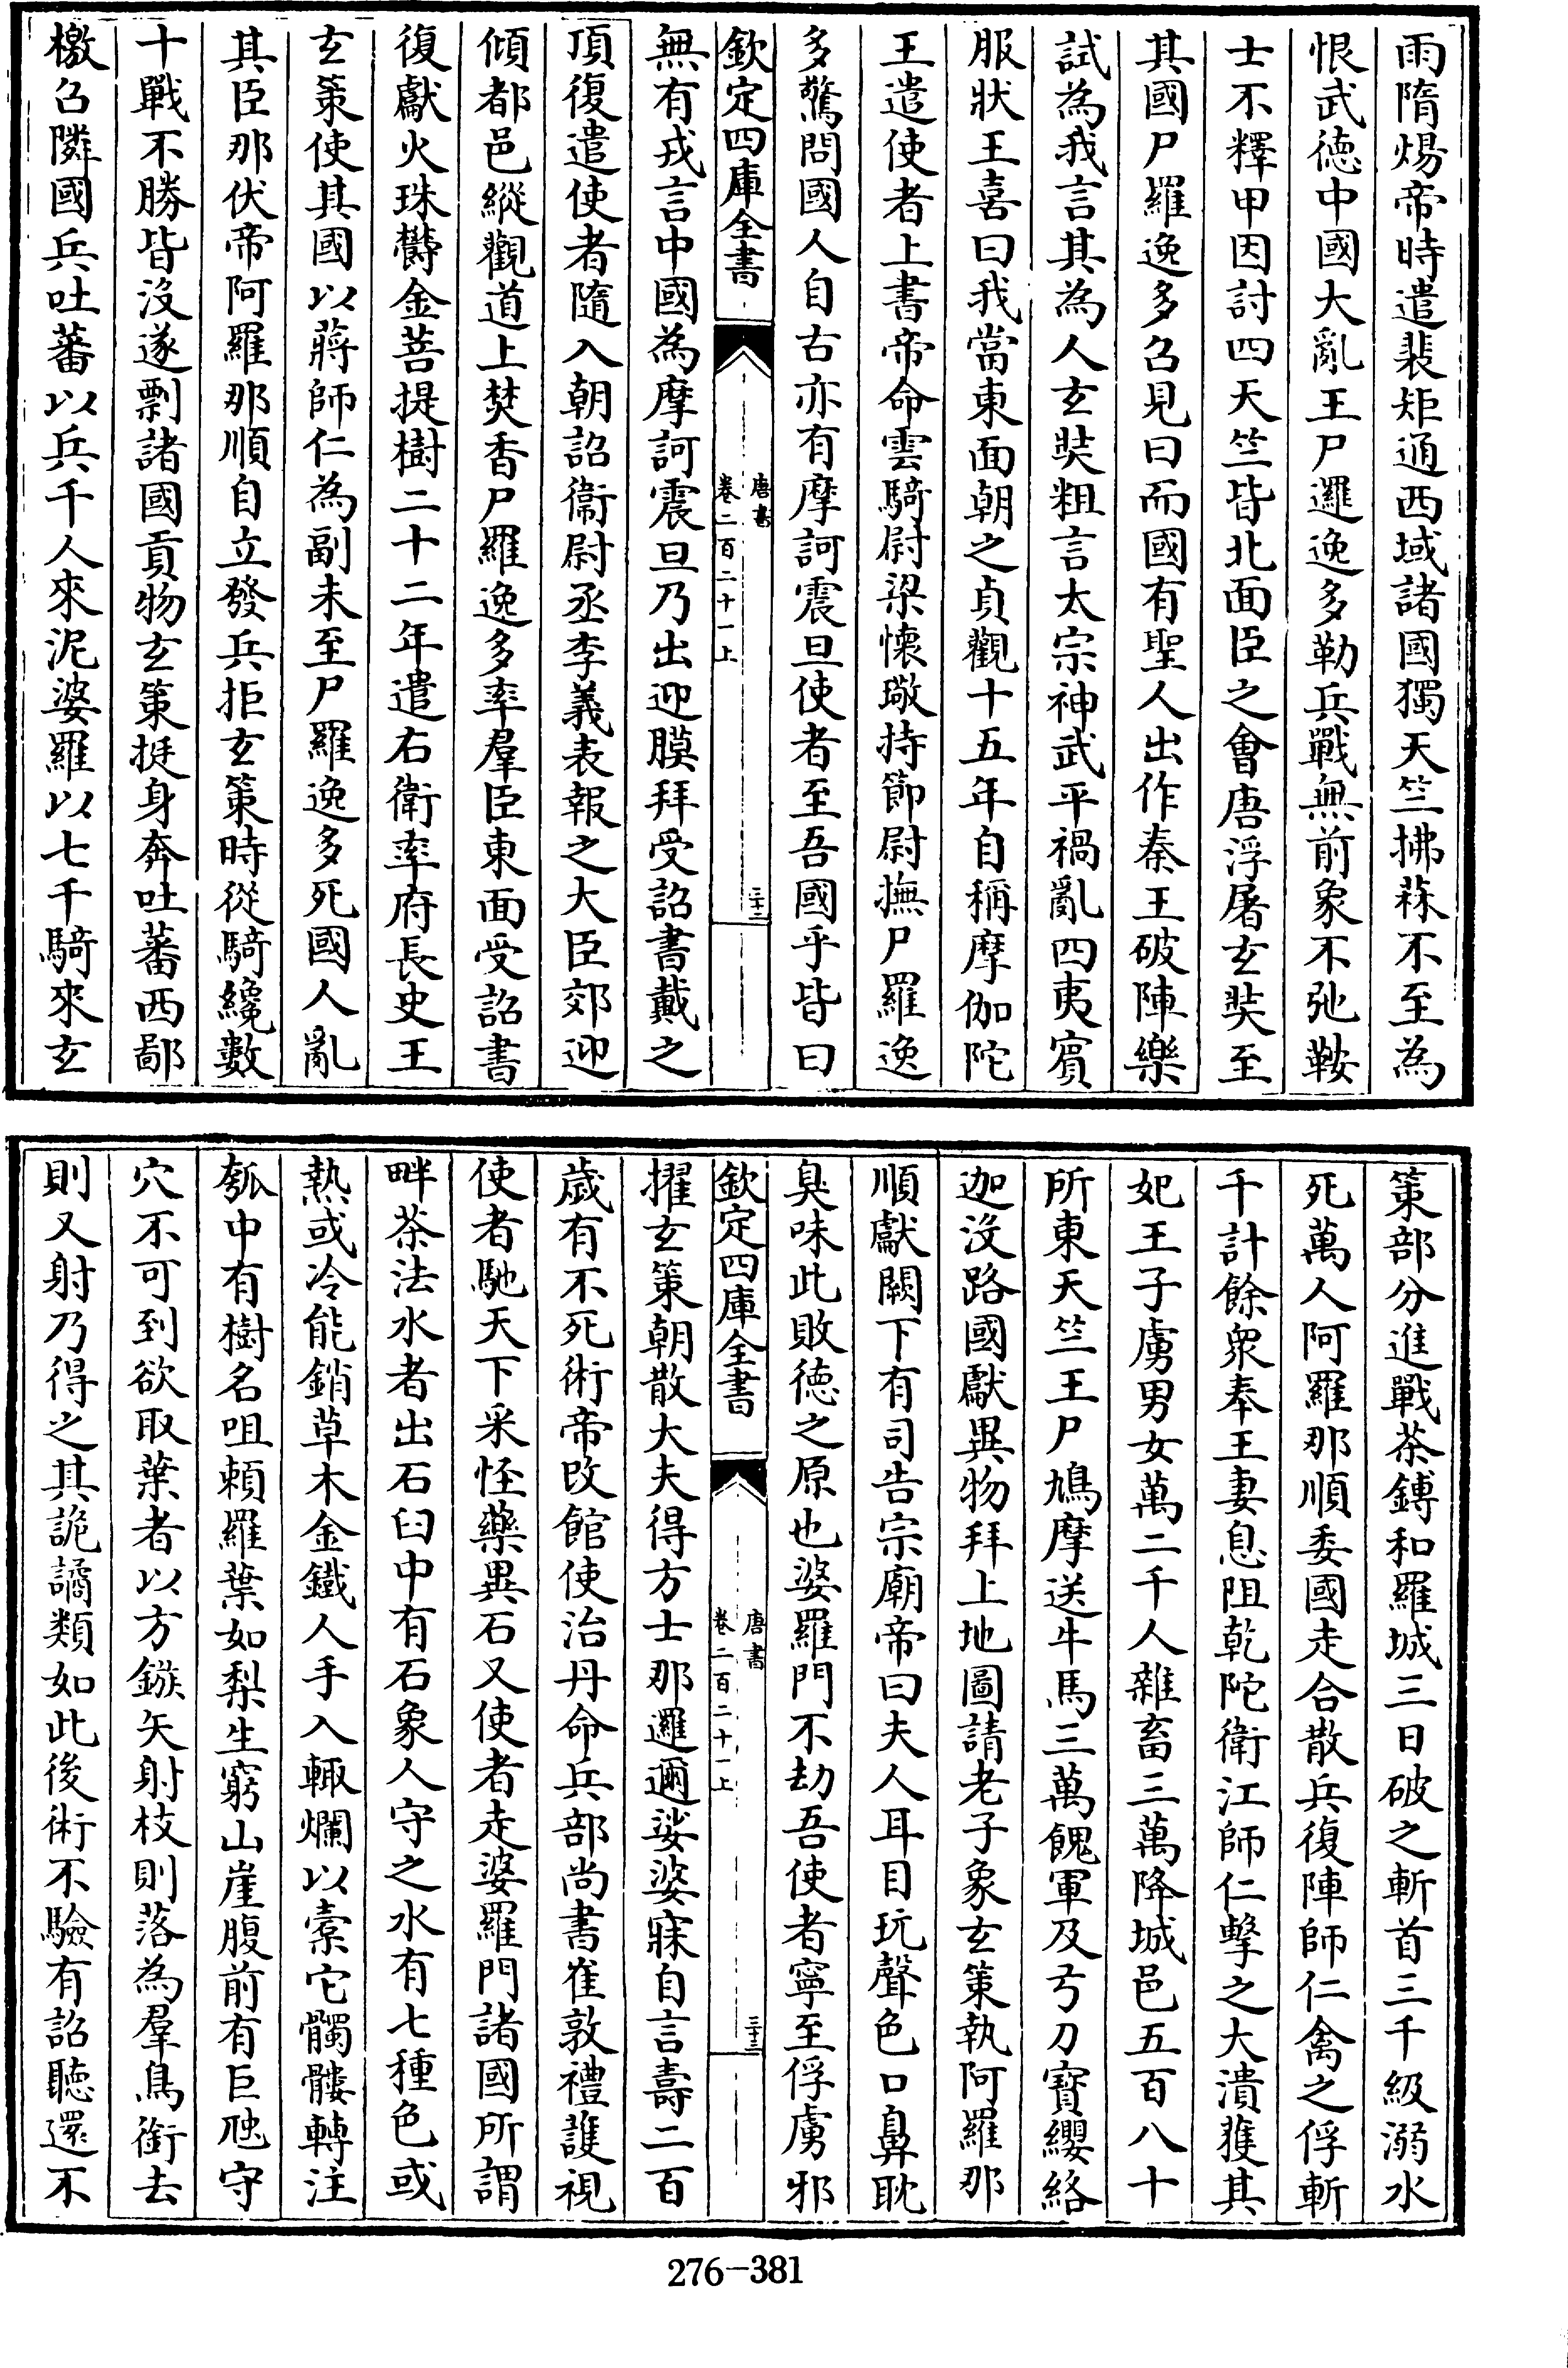 雨隋煬帝時遣裴矩通西域諸國獨天竺拂菻不至為
恨武德中國大亂王尸邏逸多勒兵戰無前象不弛鞍
士不釋甲因討四天竺皆北面臣之會唐浮屠玄奘至
其國尸羅逸多召見曰而國有聖人出作秦王破陣樂
試為我言其為人玄奘粗言太宗神武平禍亂四夷賓
服狀王喜曰我當東面朝之貞觀十五年自稱摩伽陀
王遣使者上書帝命雲騎尉梁懷璥持節尉撫尸羅逸
多驚問國人自古亦有摩訶震旦使者至吾國乎皆曰
欽定四庫全書
唐書
卷二百二十一上
三十二
無有戎言中國為摩訶震旦乃出迎膜拜受詔書戴之
頂復遣使者隨入朝詔衞尉丞李義表報之大臣郊迎
傾都邑縱觀道上焚香尸羅逸多率羣臣東面受詔書
復獻火珠鬱金菩提樹二十二年遣右衛率府長史王
玄策使其國以蔣師仁為副未至尸羅逸多死國人亂
其臣那伏帝阿羅那順自立發兵拒玄策時從騎纔數
十戰不勝皆沒遂剽諸國貢物玄策挺身奔吐蕃西鄙
檄召隣國兵吐蕃以兵千人來泥婆羅以七千騎來玄
策部分進戰茶鎛和羅城三日破之斬首三千級溺水
死萬人阿羅那順委國走合散兵復陣師仁禽之俘斬
千計餘衆奉王妻息阻乾陀衛江師仁擊之大潰獲其
妃王子虜男女萬二千人雜畜三萬降城邑五百八十
所東天竺王尸鳩摩送牛馬三萬餽軍及弓刀寶纓絡
迦沒路國獻異物拜上地圖請老子象玄策執阿羅那
順獻闕下有司告宗廟帝曰夫人耳目玩聲色口鼻耽
臭味此敗德之原也婆羅門不劫吾使者寧至俘虜邪
欽定四庫全書
唐書
卷二百二十一上
三十三
擢玄策朝散大夫得方士那邏邇娑婆寐自言壽二百
歲有不死術帝改館使治丹命兵部尚書崔敦禮護視
使者馳天下采怪藥異石又使者走婆羅門諸國所謂
畔茶法水者出石臼中有石象人守之水有七種色或
熱或冷能銷草木金鐵人手入輒爛以橐它髑髏轉注
瓠中有樹名咀賴羅葉如梨生窮山崖腹前有巨虺守
穴不可到欲取葉者以方鏃矢射枝則落為羣鳥銜去
則又射乃得之其詭譎類如此後術不驗有詔聽還不
276-381